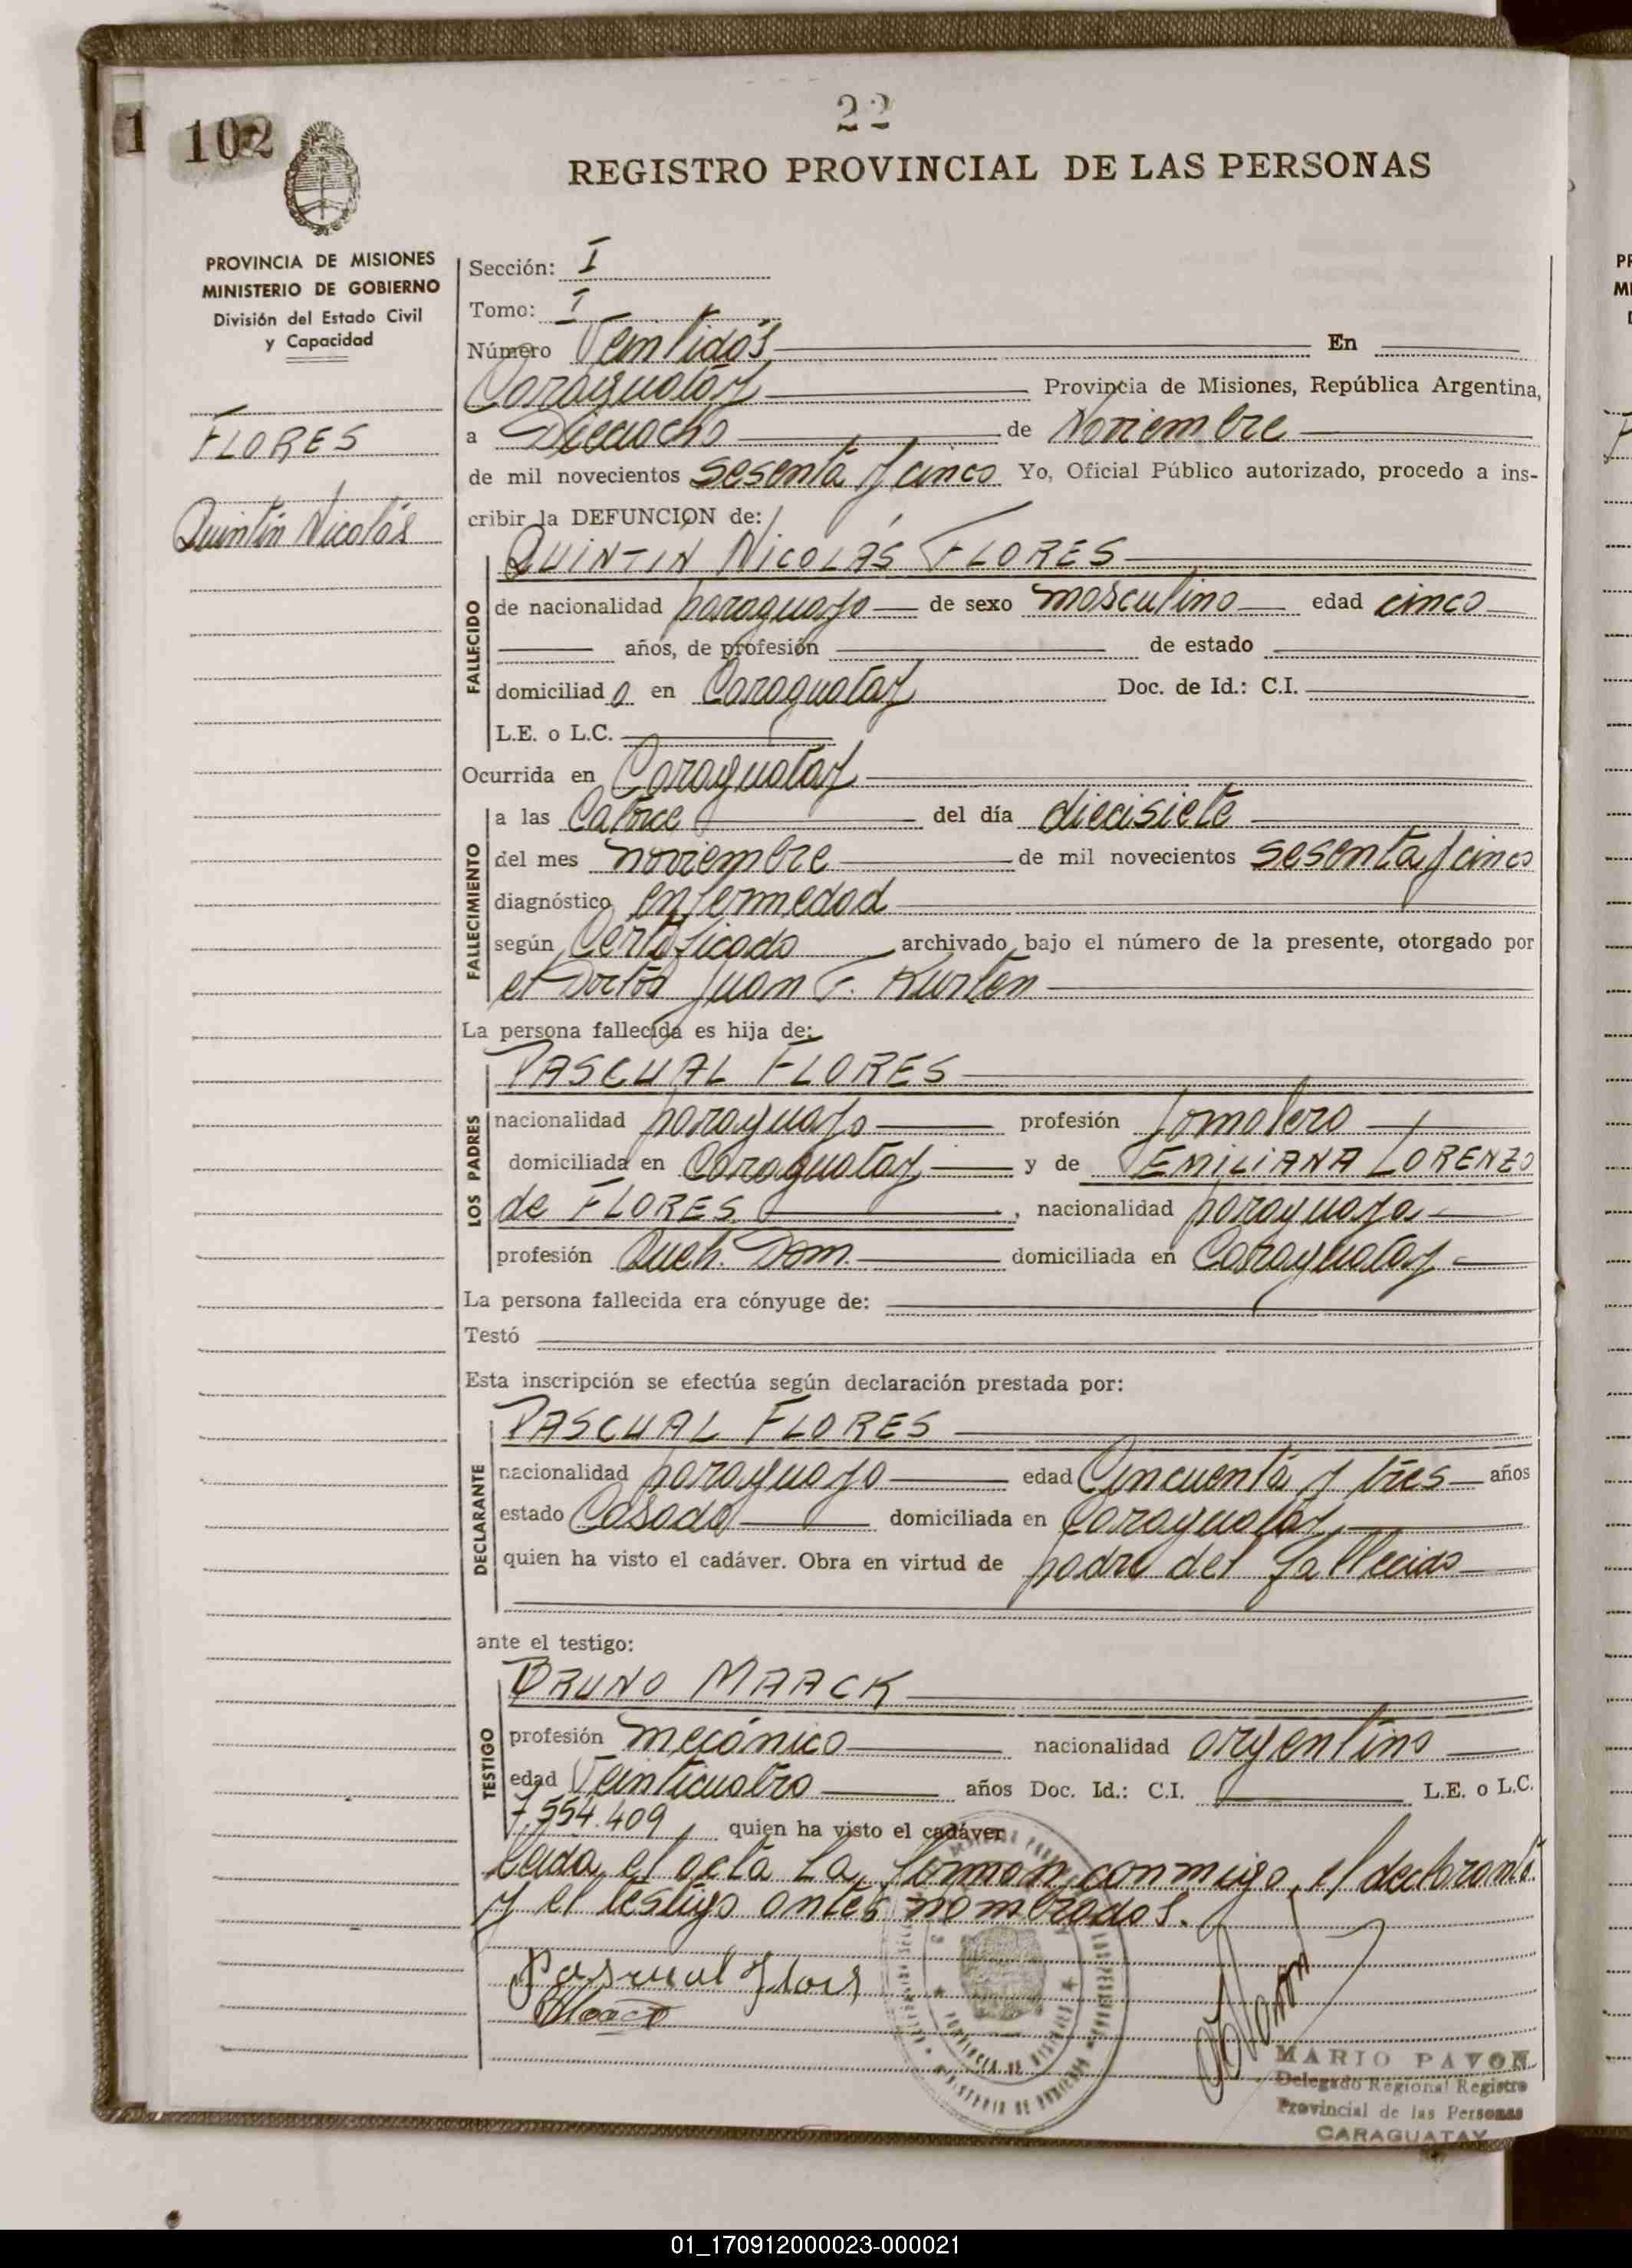 1 102
22
REGISTRO PROVINCIAL DE LAS PERSONAS
PROVINCIA DE MISIONES
MINISTERIO DE GOBIERNO
División del Estado Civil
y Capacidad
FLORES
Quintín Nicolás
Sección: I
Tomo: I
Número Veintidós En
Caraguatay Provincia de Misiones, República Argentina,
a Dieciocho de Noviembre
de mil novecientos sesenta y cinco Yo, Oficial Público autorizado, procedo a ins-
cribir la DEFUNCIÓN de:
QUINTIN NICOLÁS FLORES
FALLECIDO
de nacionalidad paraguayo de sexo masculino edad cinco
años, de profesión de estado
domiciliado en Caraguatay Doc. de Id.: C.I.
L.E. o L.C.
Ocurrida en Caraguatay
FALLECIMIENTO
a las Catorce del día diecisiete
del mes noviembre de mil novecientos sesenta y cinco
diagnóstico enfermedad
según Certificado archivado bajo el número de la presente, otorgado por
el Doctor Juan F. Kurten
La persona fallecida es hija de:
PASCUAL FLORES
LOS PADRES
nacionalidad paraguayo profesión Jornalero
domiciliada en Caraguatay y de EMILIANA LORENZO
de FLORES, nacionalidad paraguaya
profesión Queh. Dom. domiciliada en Caraguatay
La persona fallecida era cónyuge de:
Testó
Esta inscripción se efectúa según declaración prestada por:
PASCUAL FLORES
DECLARANTE
nacionalidad paraguayo edad Cincuenta y tres años
estado Casado domiciliada en Caraguatay
quien ha visto el cadáver. Obra en virtud de padre del fallecido
ante el testigo:
BRUNO MAACK
TESTIGO
profesión mecánico nacionalidad argentino
edad Veinticuatro años Doc. Id.: C.I. L.E. o L.C.
7.554.409 quien ha visto el cadáver
Leida el acta la firman conmigo, el declarante
y el testigo antes nombrados.
Pascual Flores
Maack
MARIO PAVON
Delegado Regional Registro
Provincial de las Personas
CARAGUATAY
01_170912000023-000021